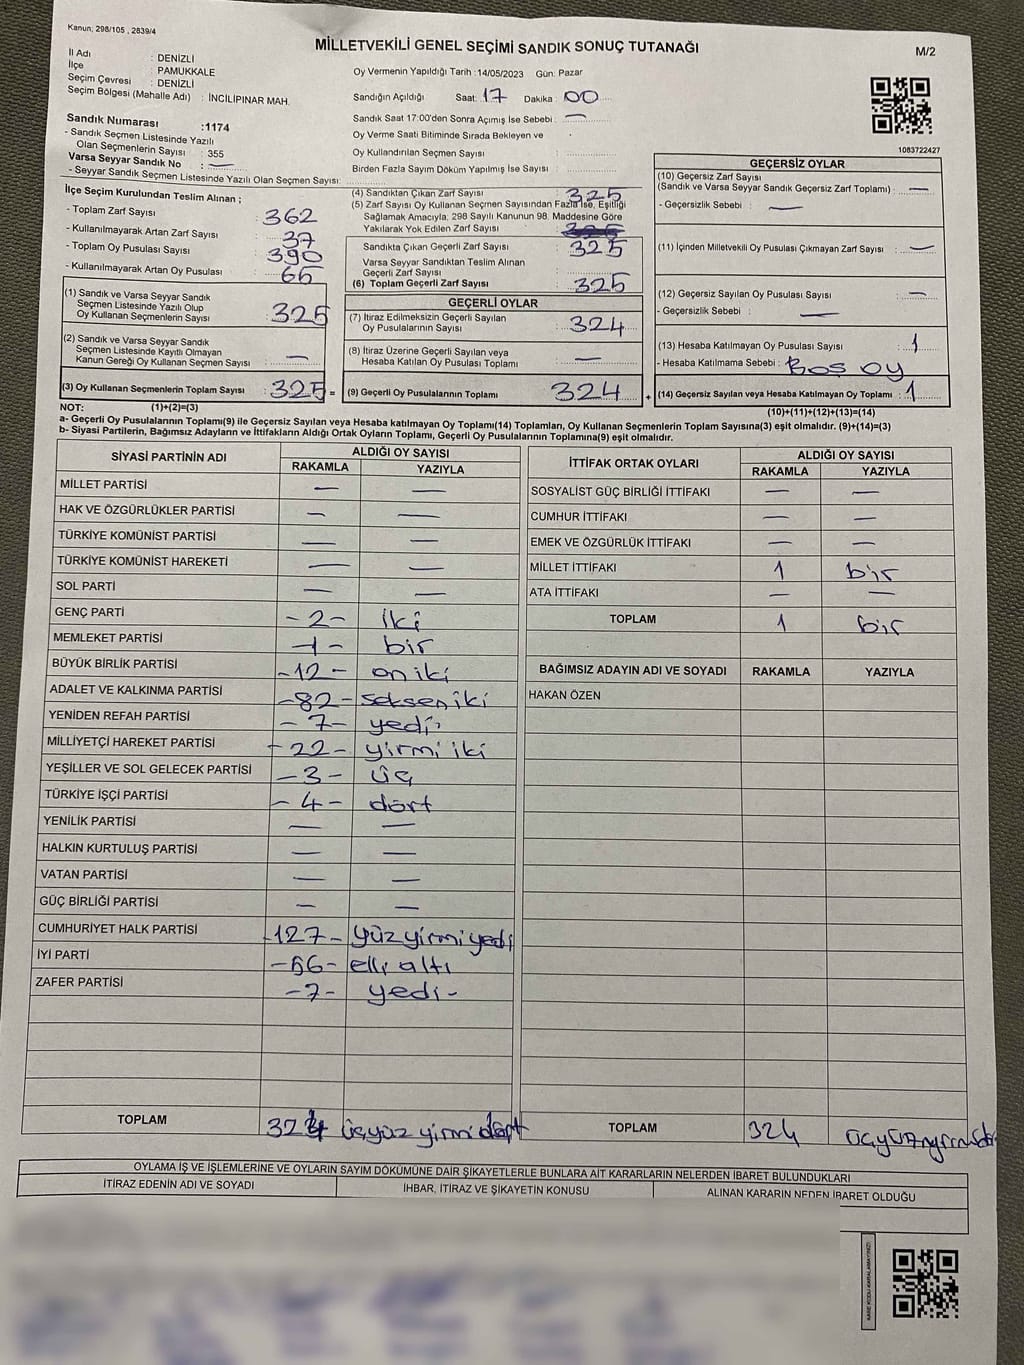 Kanun, 298/105 , 2839/4
MİLLETVEKİLİ GENEL SEÇİMİ SANDIK SONUÇ TUTANAĞI
M/2
İl Adı : DENİZLİ
İlçe : PAMUKKALE
Seçim Çevresi : DENİZLİ
Seçim Bölgesi (Mahalle Adı) : İNCİLİPINAR MAH.
Oy Vermenin Yapıldığı Tarih :14/05/2023 Gün: Pazar
Sandığın Açıldığı Saat: 17 Dakika : 00
Sandık Numarası :1174
- Sandık Seçmen Listesinde Yazılı
Olan Seçmenlerin Sayısı : 355
Varsa Seyyar Sandık No : —
- Seyyar Sandık Seçmen Listesinde Yazılı Olan Seçmen Sayısı:
Sandık Saat 17:00'den Sonra Açımış İse Sebebi : —
Oy Verme Saati Bitiminde Sırada Bekleyen ve
Oy Kullandırılan Seçmen Sayısı
Birden Fazla Sayım Döküm Yapılmış İse Sayısı :
1083722427
İlçe Seçim Kurulundan Teslim Alınan ;
- Toplam Zarf Sayısı : 362
- Kullanılmayarak Artan Zarf Sayısı : 37
- Toplam Oy Pusulası Sayısı : 390
- Kullanılmayarak Artan Oy Pusulası : 65
(1) Sandık ve Varsa Seyyar Sandık
Seçmen Listesinde Yazılı Olup
Oy Kullanan Seçmenlerin Sayısı : 325
(2) Sandık ve Varsa Seyyar Sandık
Seçmen Listesinde Kayıtlı Olmayan
Kanun Gereği Oy Kullanan Seçmen Sayısı : —
(3) Oy Kullanan Seçmenlerin Toplam Sayısı : 325 =
(4) Sandıktan Çıkan Zarf Sayısı : 325
(5) Zarf Sayısı Oy Kullanan Seçmen Sayısından Fazla İse, Eşitliği
Sağlamak Amacıyla, 298 Sayılı Kanunun 98. Maddesine Göre
Yakılarak Yok Edilen Zarf Sayısı
Sandıkta Çıkan Geçerli Zarf Sayısı : 325
Varsa Seyyar Sandıktan Teslim Alınan
Geçerli Zarf Sayısı
(6) Toplam Geçerli Zarf Sayısı : 325
GEÇERLİ OYLAR
(7) İtiraz Edilmeksizin Geçerli Sayılan
Oy Pusulalarının Sayısı : 324
(8) İtiraz Üzerine Geçerli Sayılan veya
Hesaba Katılan Oy Pusulası Toplamı : —
(9) Geçerli Oy Pusulalarının Toplamı : 324 +
GEÇERSİZ OYLAR
(10) Geçersiz Zarf Sayısı
(Sandık ve Varsa Seyyar Sandık Geçersiz Zarf Toplamı) : —
- Geçersizlik Sebebi : —
(11) İçinden Milletvekili Oy Pusulası Çıkmayan Zarf Sayısı : —
(12) Geçersiz Sayılan Oy Pusulası Sayısı : —
- Geçersizlik Sebebi : —
(13) Hesaba Katılmayan Oy Pusulası Sayısı : 1
- Hesaba Katılmama Sebebi : Bos oy
(14) Geçersiz Sayılan veya Hesaba Katılmayan Oy Toplamı : 1
NOT: (1)+(2)=(3)
(10)+(11)+(12)+(13)=(14)
a- Geçerli Oy Pusulalarının Toplamı(9) ile Geçersiz Sayılan veya Hesaba katılmayan Oy Toplamı(14) Toplamları, Oy Kullanan Seçmenlerin Toplam Sayısına(3) eşit olmalıdır. (9)+(14)=(3)
b- Siyasi Partilerin, Bağımsız Adayların ve İttifakların Aldığı Ortak Oyların Toplamı, Geçerli Oy Pusulalarının Toplamına(9) eşit olmalıdır.
SİYASİ PARTİNİN ADI
ALDIĞI OY SAYISI
RAKAMLA YAZIYLA
MİLLET PARTİSİ — —
HAK VE ÖZGÜRLÜKLER PARTİSİ — —
TÜRKİYE KOMÜNİST PARTİSİ — —
TÜRKİYE KOMÜNİST HAREKETİ — —
SOL PARTİ — —
GENÇ PARTİ -2- iki
MEMLEKET PARTİSİ -1- bir
BÜYÜK BİRLİK PARTİSİ -12- on iki
ADALET VE KALKINMA PARTİSİ -82- seksen iki
YENİDEN REFAH PARTİSİ -7- yedi
MİLLİYETÇİ HAREKET PARTİSİ -22- yirmi iki
YEŞİLLER VE SOL GELECEK PARTİSİ -3- üç
TÜRKİYE İŞÇİ PARTİSİ -4- dört
YENİLİK PARTİSİ — —
HALKIN KURTULUŞ PARTİSİ — —
VATAN PARTİSİ — —
GÜÇ BİRLİĞİ PARTİSİ — —
CUMHURİYET HALK PARTİSİ -127- yüz yirmi yedi
İYİ PARTİ -56- elli altı
ZAFER PARTİSİ -7- yedi-
TOPLAM 324 üçyüz yirmi dört
İTTİFAK ORTAK OYLARI
ALDIĞI OY SAYISI
RAKAMLA YAZIYLA
SOSYALİST GÜÇ BİRLİĞİ İTTİFAKI — —
CUMHUR İTTİFAKI — —
EMEK VE ÖZGÜRLÜK İTTİFAKI — —
MİLLET İTTİFAKI 1 bir
ATA İTTİFAKI — —
TOPLAM 1 bir
BAĞIMSIZ ADAYIN ADI VE SOYADI RAKAMLA YAZIYLA
HAKAN ÖZEN
TOPLAM 324
OYLAMA İŞ VE İŞLEMLERİNE VE OYLARIN SAYIM DÖKÜMÜNE DAİR ŞİKAYETLERLE BUNLARA AİT KARARLARIN NELERDEN İBARET BULUNDUKLARI
İTİRAZ EDENİN ADI VE SOYADI
İHBAR, İTİRAZ VE ŞİKAYETİN KONUSU
ALINAN KARARIN NEDEN İBARET OLDUĞU